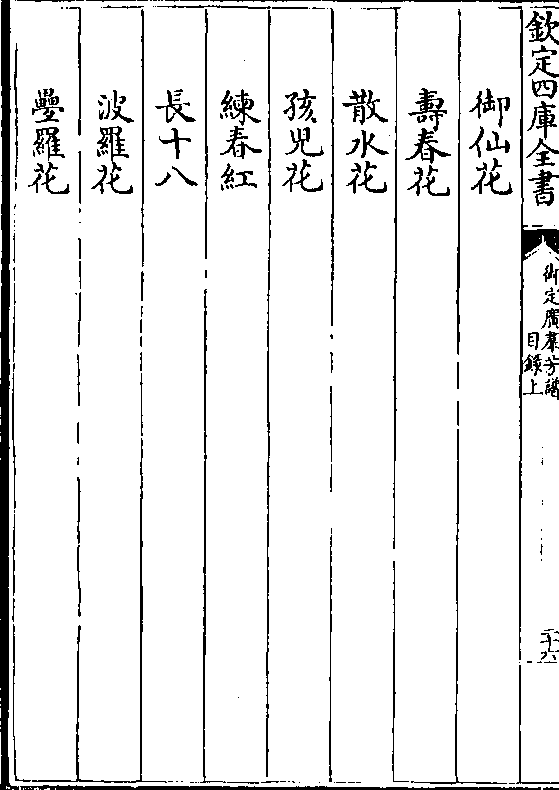 欽定四庫全書
御定廣羣芳譜
目録上
御仙花
壽春花
散水花
孩兒花
練春紅
長十八
波羅花
疊羅花